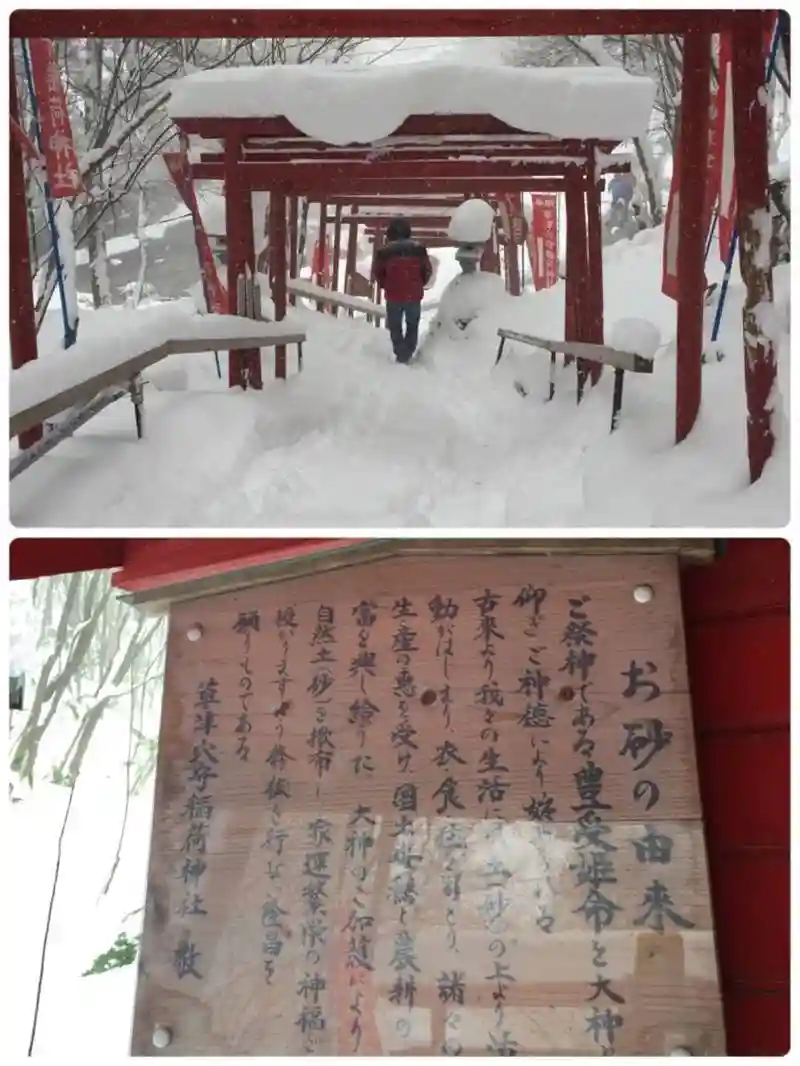 稲荷神社
お砂の由来
ご祭神である豊受姫命を大神と
仰ぎご神徳により始められる
古来より我々の生活は土(砂)の上より活
動がはじまり、衣、食、住を司どり、諸々の
生産の恵を受け、国土を鎮し農耕の
富を興し給うた 大神のご加護により
自然土(砂)を撒布し 家運繁栄の神福を
授かりますよう祭儀を行ない隆昌を
願うものである
草津穴守稲荷神社 敬